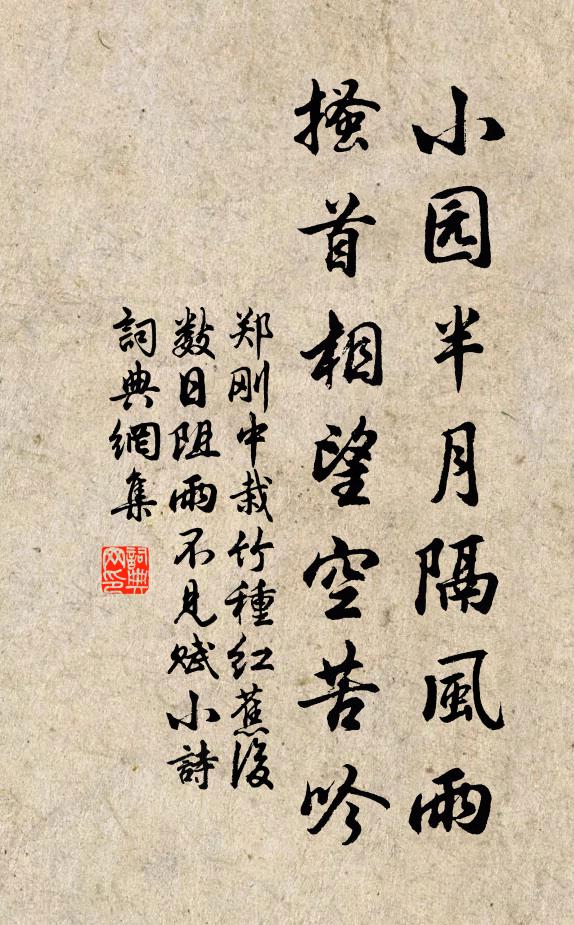 小园半月隔風雨
搔首相望空苦吟
郑刚中栽竹種红蕉後
数日阻雨不見赋小詩
詞典網集
詞典网印